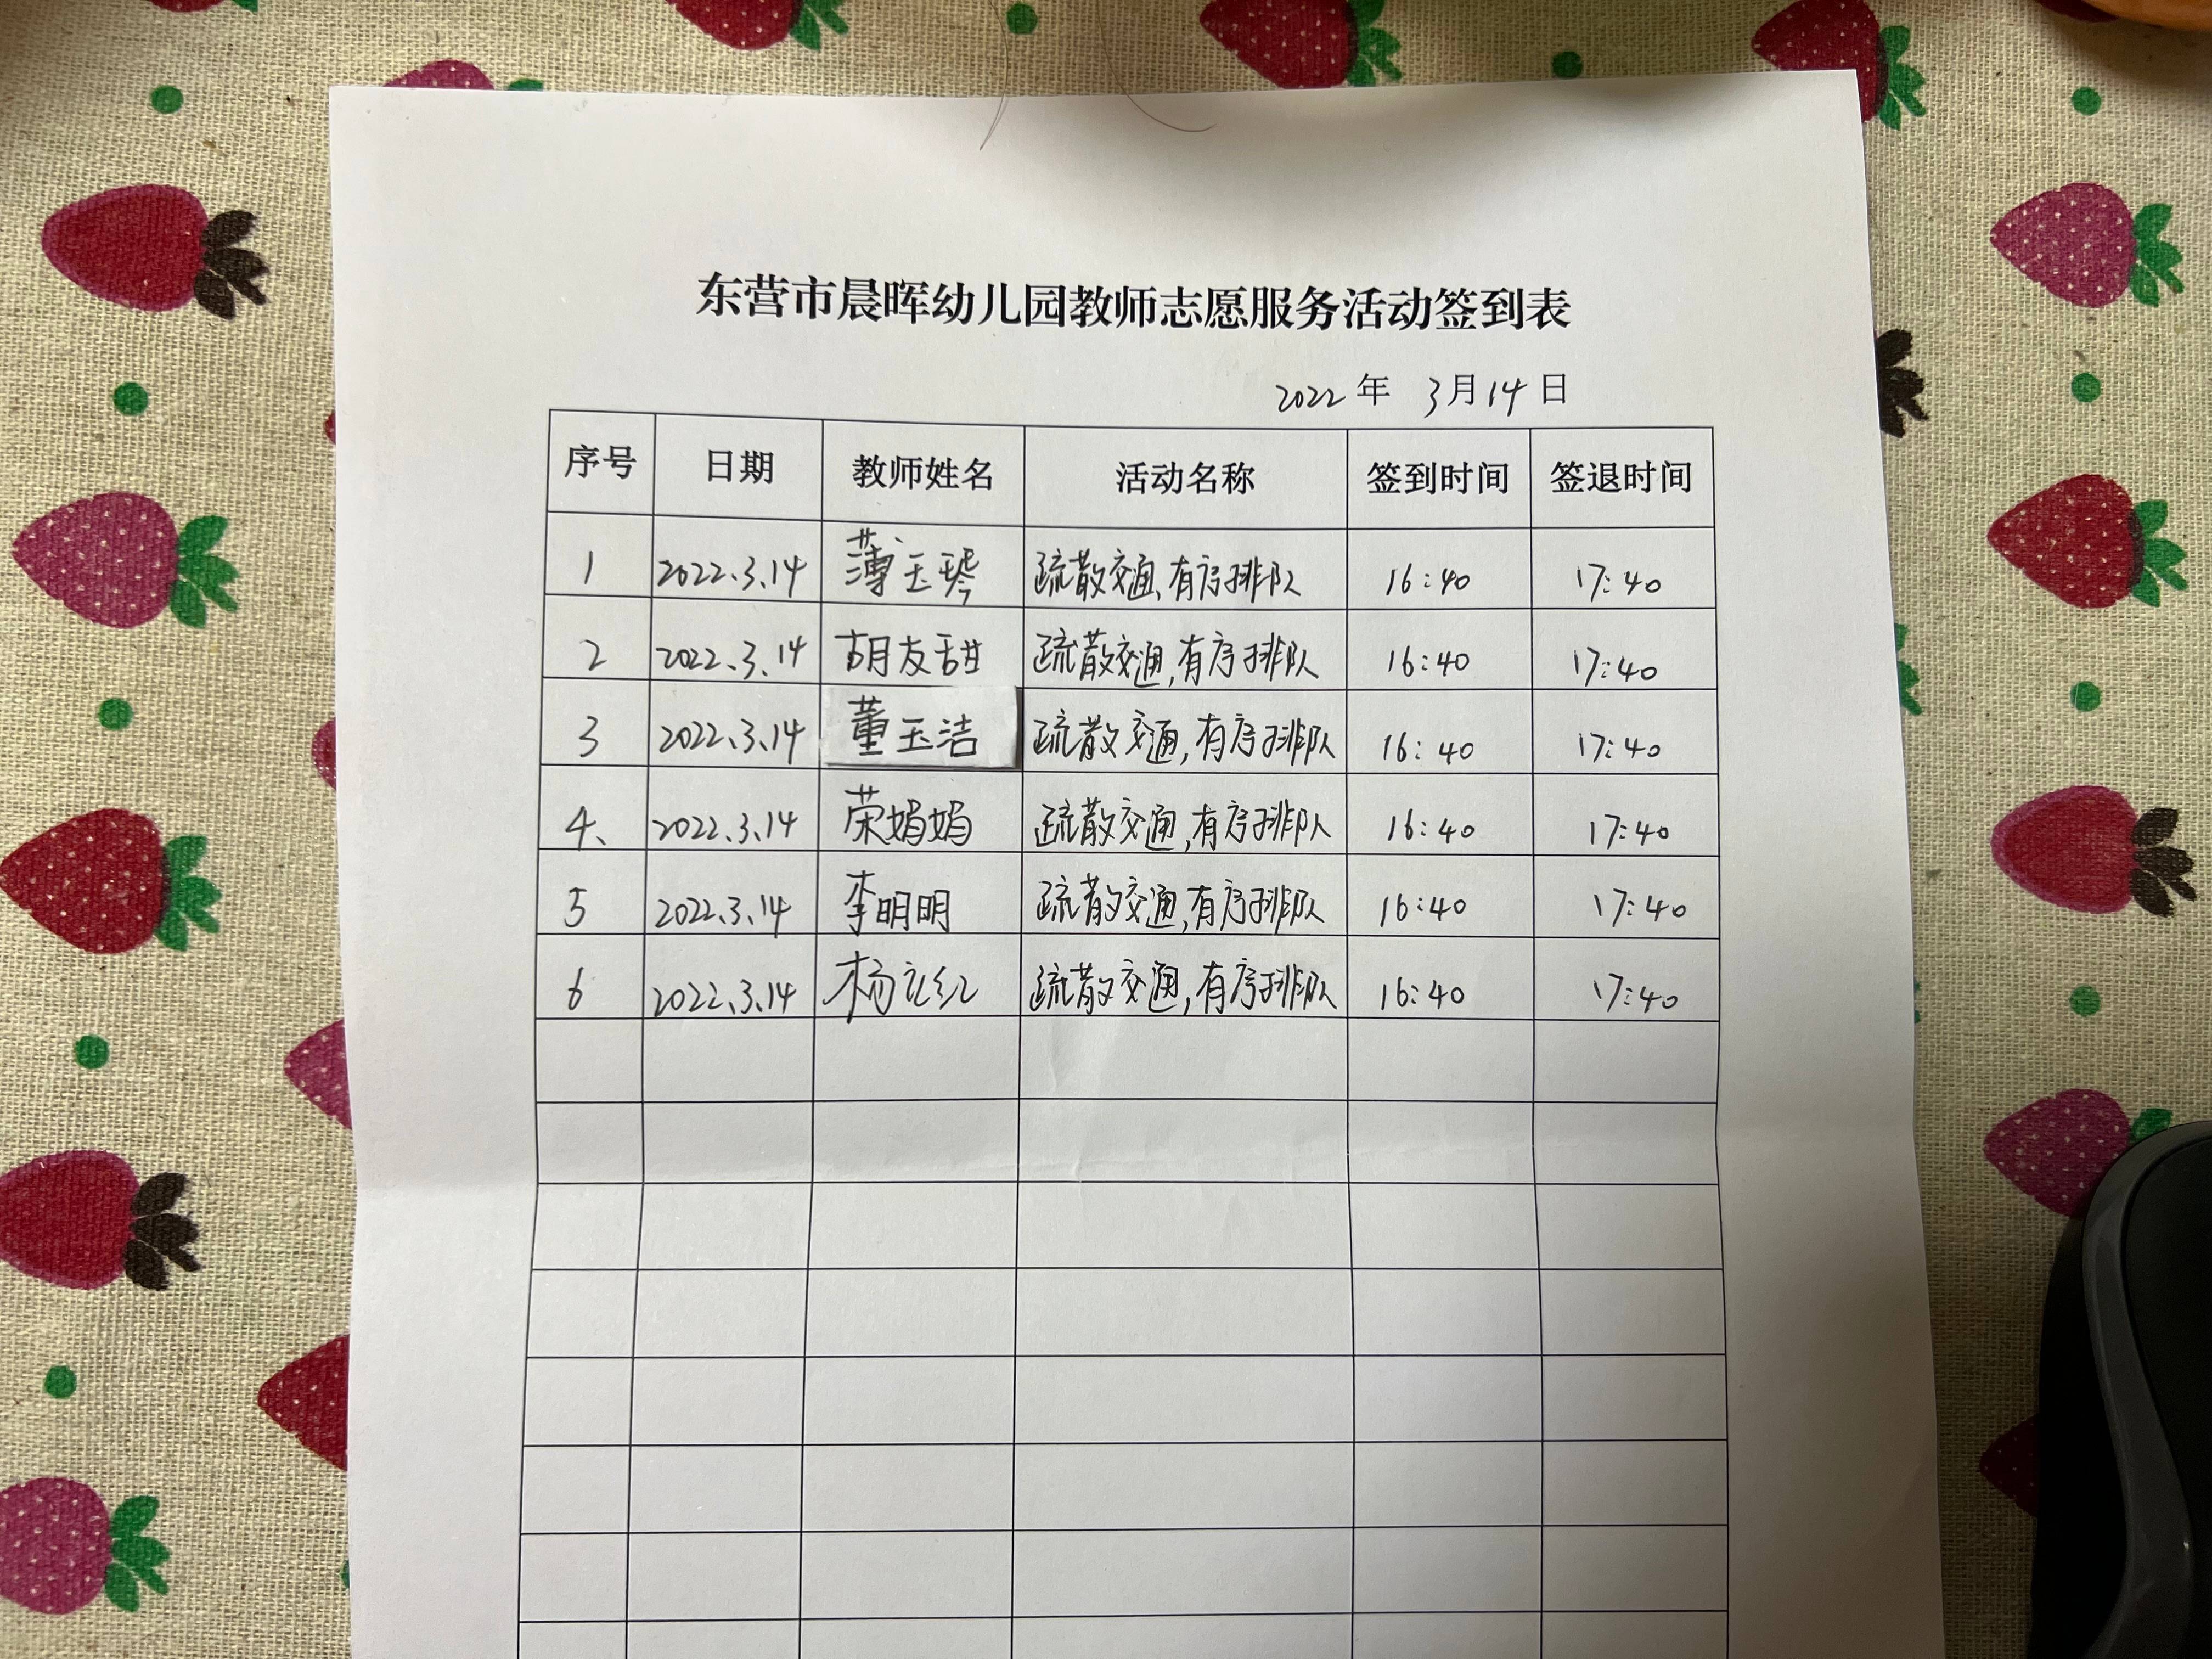 东营市晨晖幼儿园教师志愿服务活动签到表
2022年 3月14日
序号 日期 教师姓名 活动名称 签到时间 签退时间
1 2022.3.14 薄玉琴 疏散交通,有序排队 16:40 17:40
2 2022.3.14 胡友甜 疏散交通,有序排队 16:40 17:40
3 2022.3.14 董玉洁 疏散交通,有序排队 16:40 17:40
4、 2022.3.14 荣娟娟 疏散交通,有序排队 16:40 17:40
5 2022.3.14 李明明 疏散交通,有序排队 16:40 17:40
6 2022.3.14 杨立红 疏散交通,有序排队 16:40 17:40